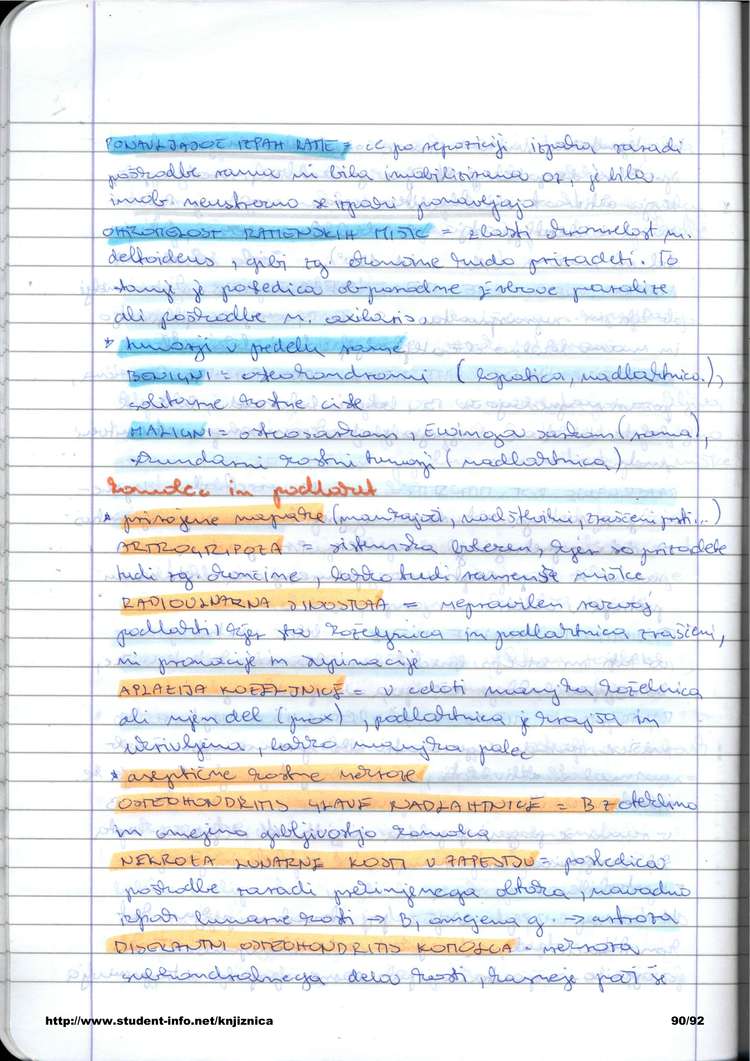 PONAVLJAJOČ IZPAH RAME = če po repoziciji izpaha zaradi
poškodbe rama ni bila imobilizirana oz. je bila
imob neustrezno se izpahi ponavljajo
OHROMELOST RAMENSKIH MIŠIC = zlasti ohromelost m.
deltoideus, gibi zg. okončine hudo prizadeti. To
stanje je posledica obporodne ževove paralize
ali poškodbe n. axilaris.
* tumorji v predelu rame
BENIGNI = osteohondromi (lopatica, nadlahtnica.),
solitarne kostne ciste
MALIGNI = osteosarkom, Ewingov sarkom (rama),
sekundarni kostni tumorji (nadlahtnica)
komolec in podlaket
* prirojene napake (manjkajoči, nadštevilni, zraščeni prsti...)
ARTROGRIPOZA = sistemska bolezen, kjer so prizadete
tudi zg. okončine, lahko tudi ramenske mišice
RADIOULNARNA SINOSTOZA = nepravilen razvoj
podlahti, kjer sta koželjnica in podlahtnica zraščeni,
ni pronacije in supinacije
APLAZIJA KOŽELJNICE = v celoti manjka koželnica
ali njen del (prox), podlahtnica je krajša in
ukrivljena, lahko manjka palec
* aseptične kostne nekroze
OSTEOHONDRITIS GLAVE NADLAHTNICE = B z oteklino
in omejeno gibljivostjo komolca
NEKROZA LUNARNE KOSTI V ZAPESTJU = posledica
poškodbe zaradi prekinjenega obtoka, navadno
izpah lunarne kosti → B, omejena g. → artroza
DISEKANTNI OSTEOHONDRITIS KOMOLCA - nekroza
subhondralnega dela kosti, kasneje pa še
http://www.student-info.net/knjiznica 90/92